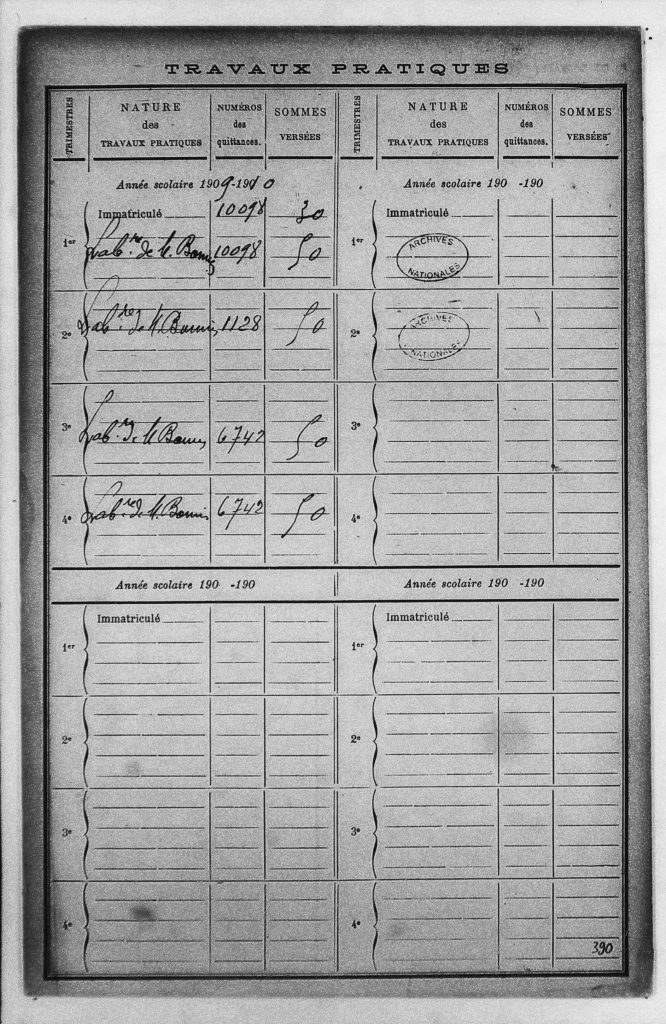 TRAVAUX PRATIQUES
TRIMESTRES
NATURE
des
TRAVAUX PRATIQUES
NUMÉROS
des
quittances.
SOMMES
VERSÉES
TRIMESTRES
NATURE
des
TRAVAUX PRATIQUES
NUMÉROS
des
quittances.
SOMMES
VERSÉES
Année scolaire 1909-1910
Immatriculé 10098 30
1er Lab.re de M. 10098 50
2e Lab.re de M. 1128 50
3e Lab.re de M. 6742 50
4e Lab.re de M. 6742 50
Année scolaire 190 -190
Immatriculé
1er
ARCHIVES
NATIONALES
2e
ARCHIVES
NATIONALES
3e
4e
Année scolaire 190 -190
Immatriculé
1er
2e
3e
4e
Année scolaire 190 -190
Immatriculé
1er
2e
3e
4e
390